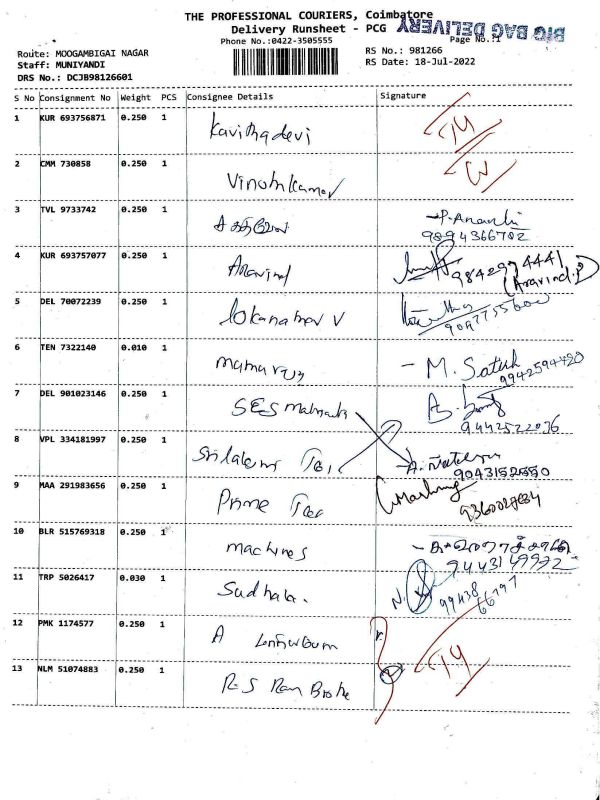 THE PROFESSIONAL COURIERS, Coimbatore
Delivery Runsheet - PCG
BIG BAG DELIVERY
Phone No.:0422-3505555
Page No.:1
Route: MOOGAMBIGAI NAGAR
RS No.: 981266
Staff: MUNIYANDI
RS Date: 18-Jul-2022
DRS No.: DCJB98126601
S No Consignment No Weight PCS Consignee Details Signature
1 KUR 693756871 0.250 1 Kavithadevi
2 CMM 730858 0.250 1 Vinothkumar
3 TVL 9733742 0.250 1 சக்திவேல் P.Ananthi
9894366702
4 KUR 693757077 0.250 1 Aravind 9842974441
(Aravind.P)
5 DEL 70072239 0.250 1 lokanathan V
6 TEN 7322140 0.010 1 M. Satish
9942594420
7 DEL 901023146 0.250 1 SES
9442522036
8 VPL 334181997 0.250 1
9043152550
9 MAA 291983656 0.250 1 Prime Tec
10 BLR 515769318 0.250 1 machines
9443149992
11 TRP 5026417 0.030 1 Sudhala.
99438
66797
12 PMK 1174577 0.250 1 A
13 NLM 51074883 0.250 1 R.S Ram